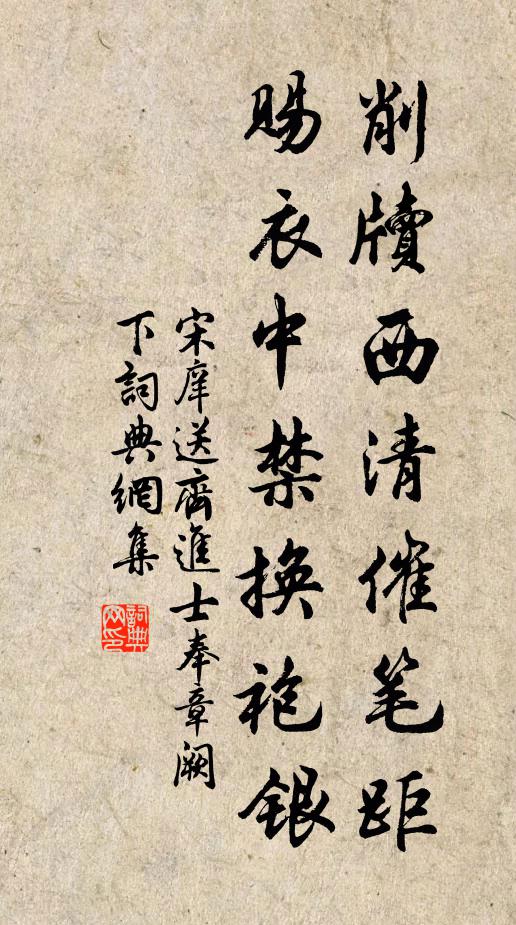 削牘西清催笔距
賜衣中禁換袍銀
宋庠送齊進士奉章闕
下詞典網集
詞典
网印